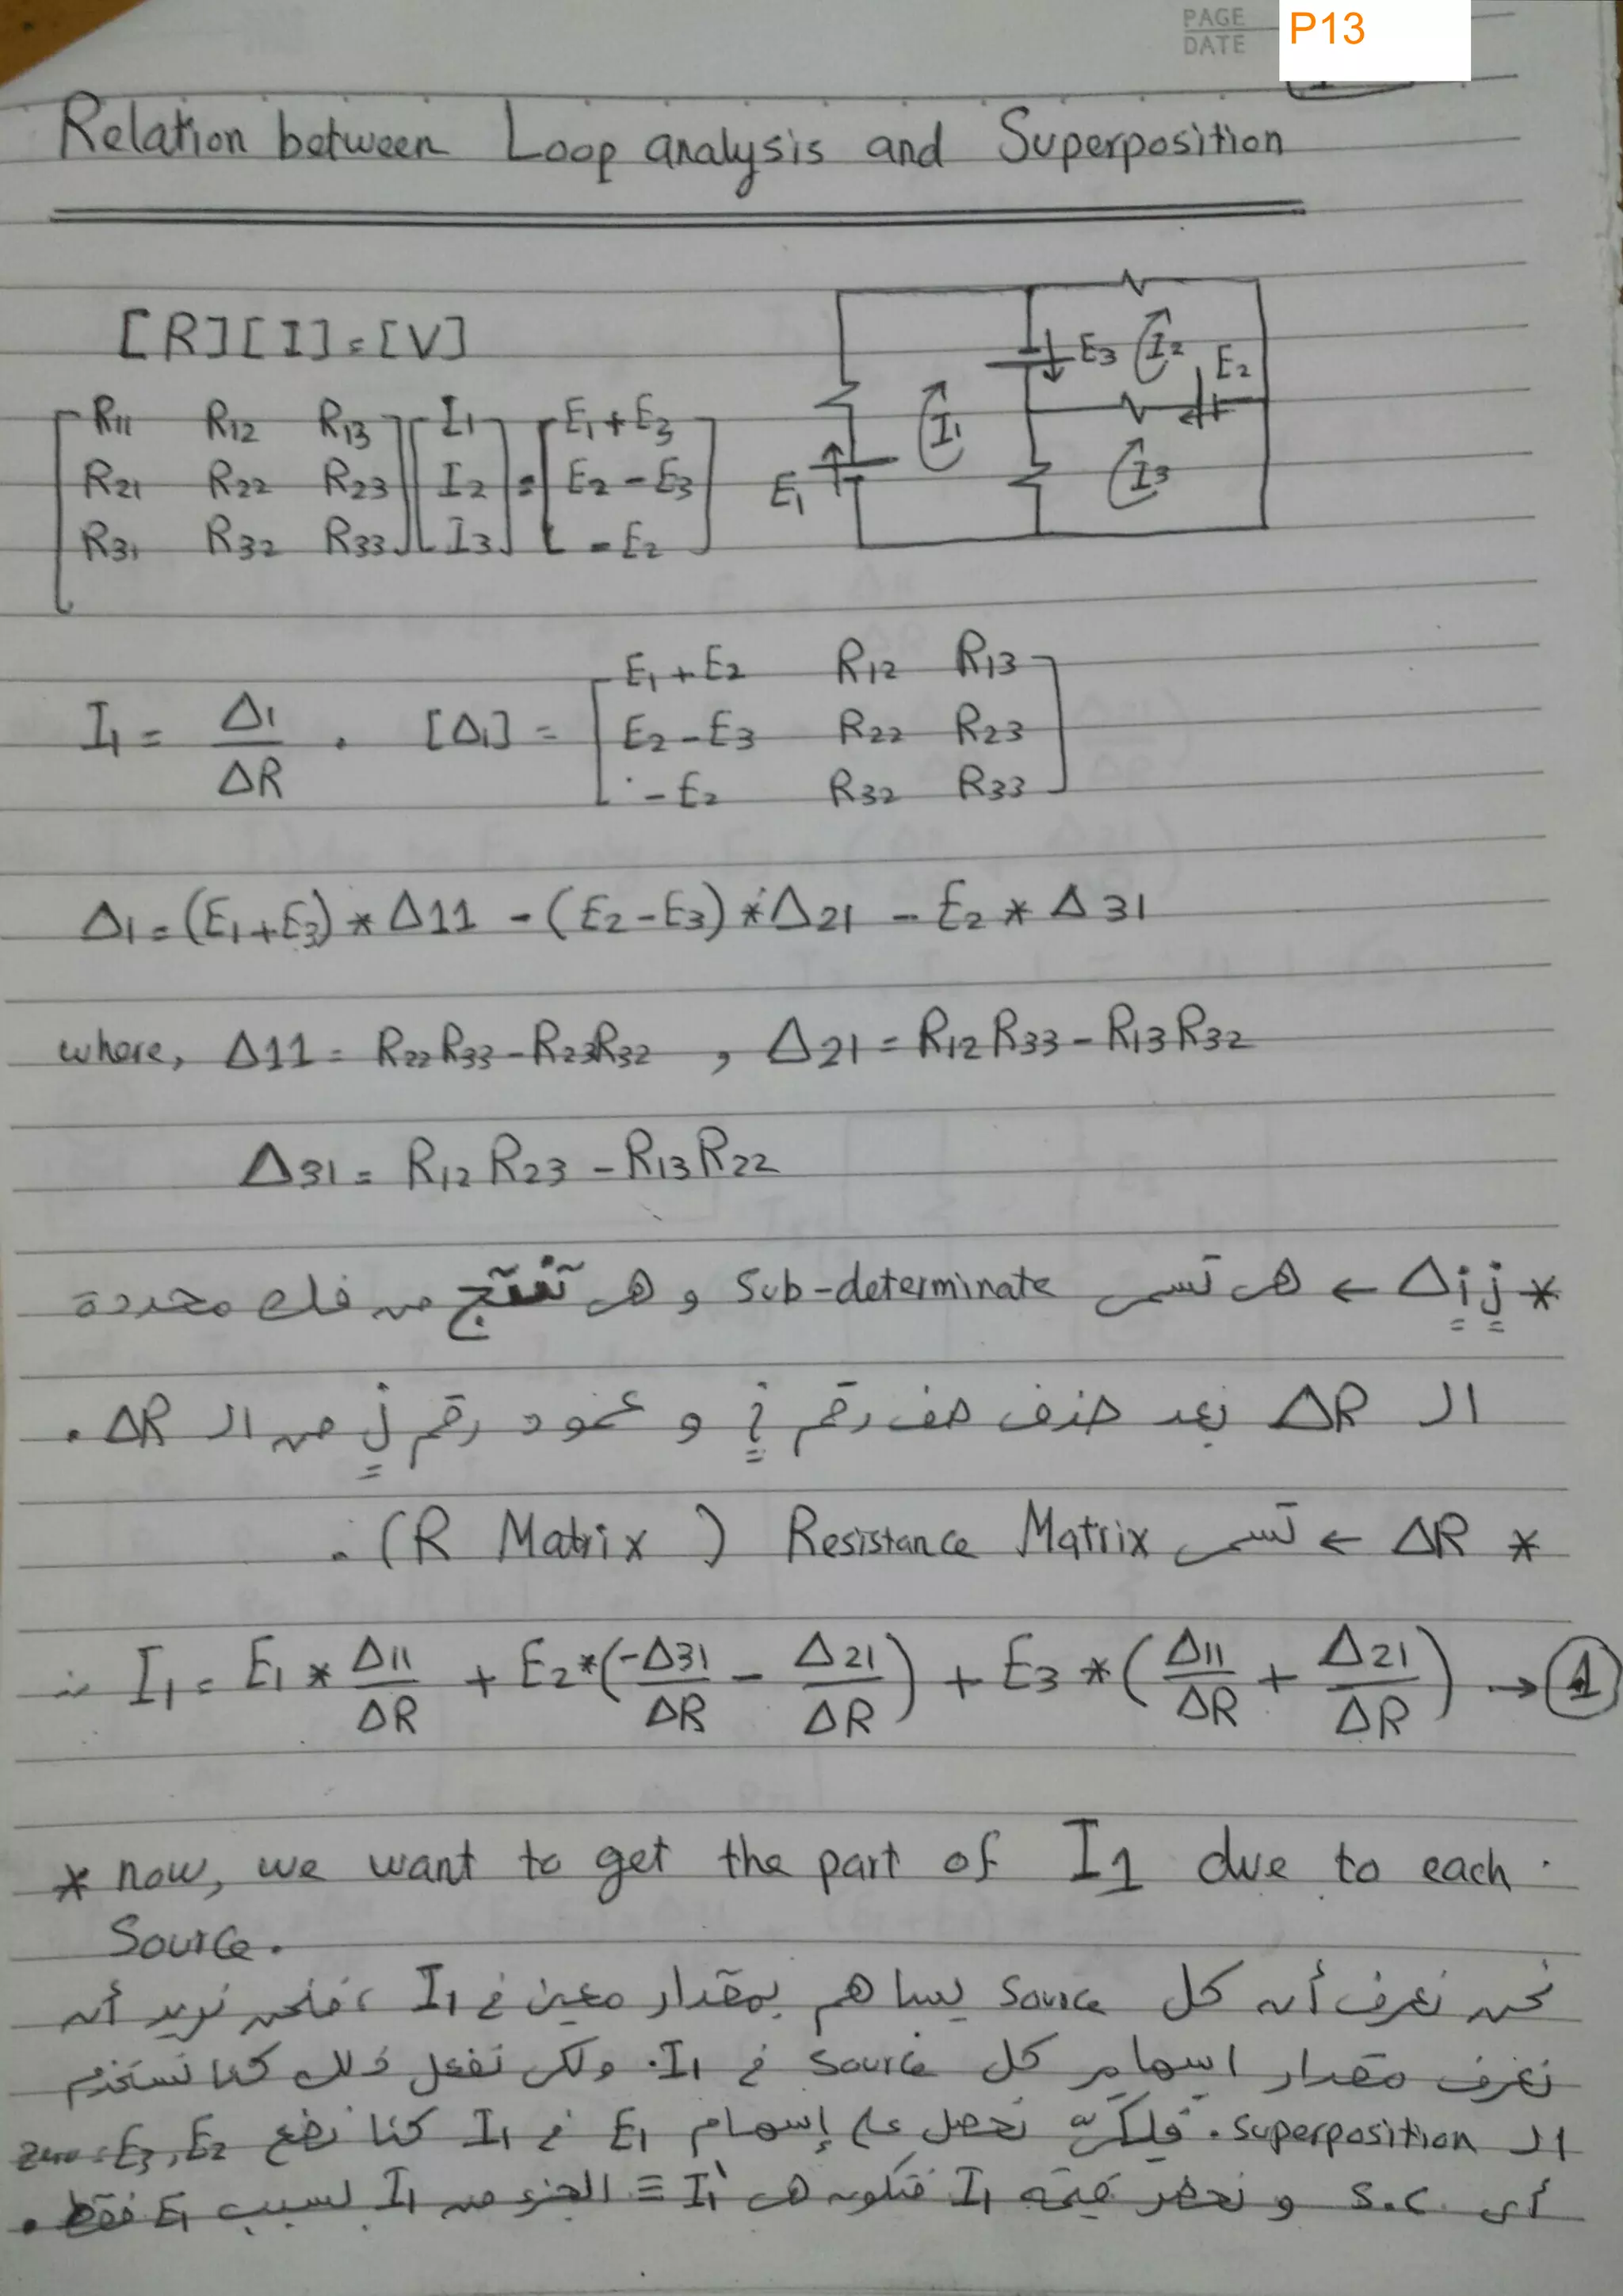 PAGE
DATE
P13
Relation between Loop analysis and Superposition
[R][I]=[V]
R11 R12 R13 I1 E1+E3
R21 R22 R23 I2 = E2-E3
R31 R32 R33 I3 -E2
E1 I1 E3 I2 E2 I3
I1 = Δ1/ΔR , [Δ1] =
E1+E2 R12 R13
E2-E3 R22 R23
-E2 R32 R33
Δ1=(E1+E3)*Δ11 -(E2-E3)*Δ21 -E2*Δ31
where, Δ11= R22R33-R23R32 , Δ21=R12R33-R13R32
Δ31= R12R23-R13R22
* Δij ← هى تسمى Sub-determinate و هى تنتج من فك محددة
الـ ΔR بعد حذف صف رقم i و عمود رقم j من الـ ΔR .
* ΔR ← تسمى Resistance Matrix ( R Matrix ) .
∴ I1 = E1 * Δ11/ΔR + E2*(-Δ31/ΔR - Δ21/ΔR) + E3 *(Δ11/ΔR + Δ21/ΔR) → 1
* now, we want to get the part of I1 due to each
Source.
نحن نعرف أن كل source يساهم بمقدار معين فى I1 ، فنحن نريد أن
نعرف مقدار اسهام كل source فى I1. ولكى نفعل ذلك كنا نستخدم
الـ superposition. فلكى نحصل على إسهام E1 فى I1 كنا نضع E3, E2 = zero
أى s.c و نحضر قيمة I1 فتكون هى I1` ≡ الجزء من I1 بسبب E1 فقط .